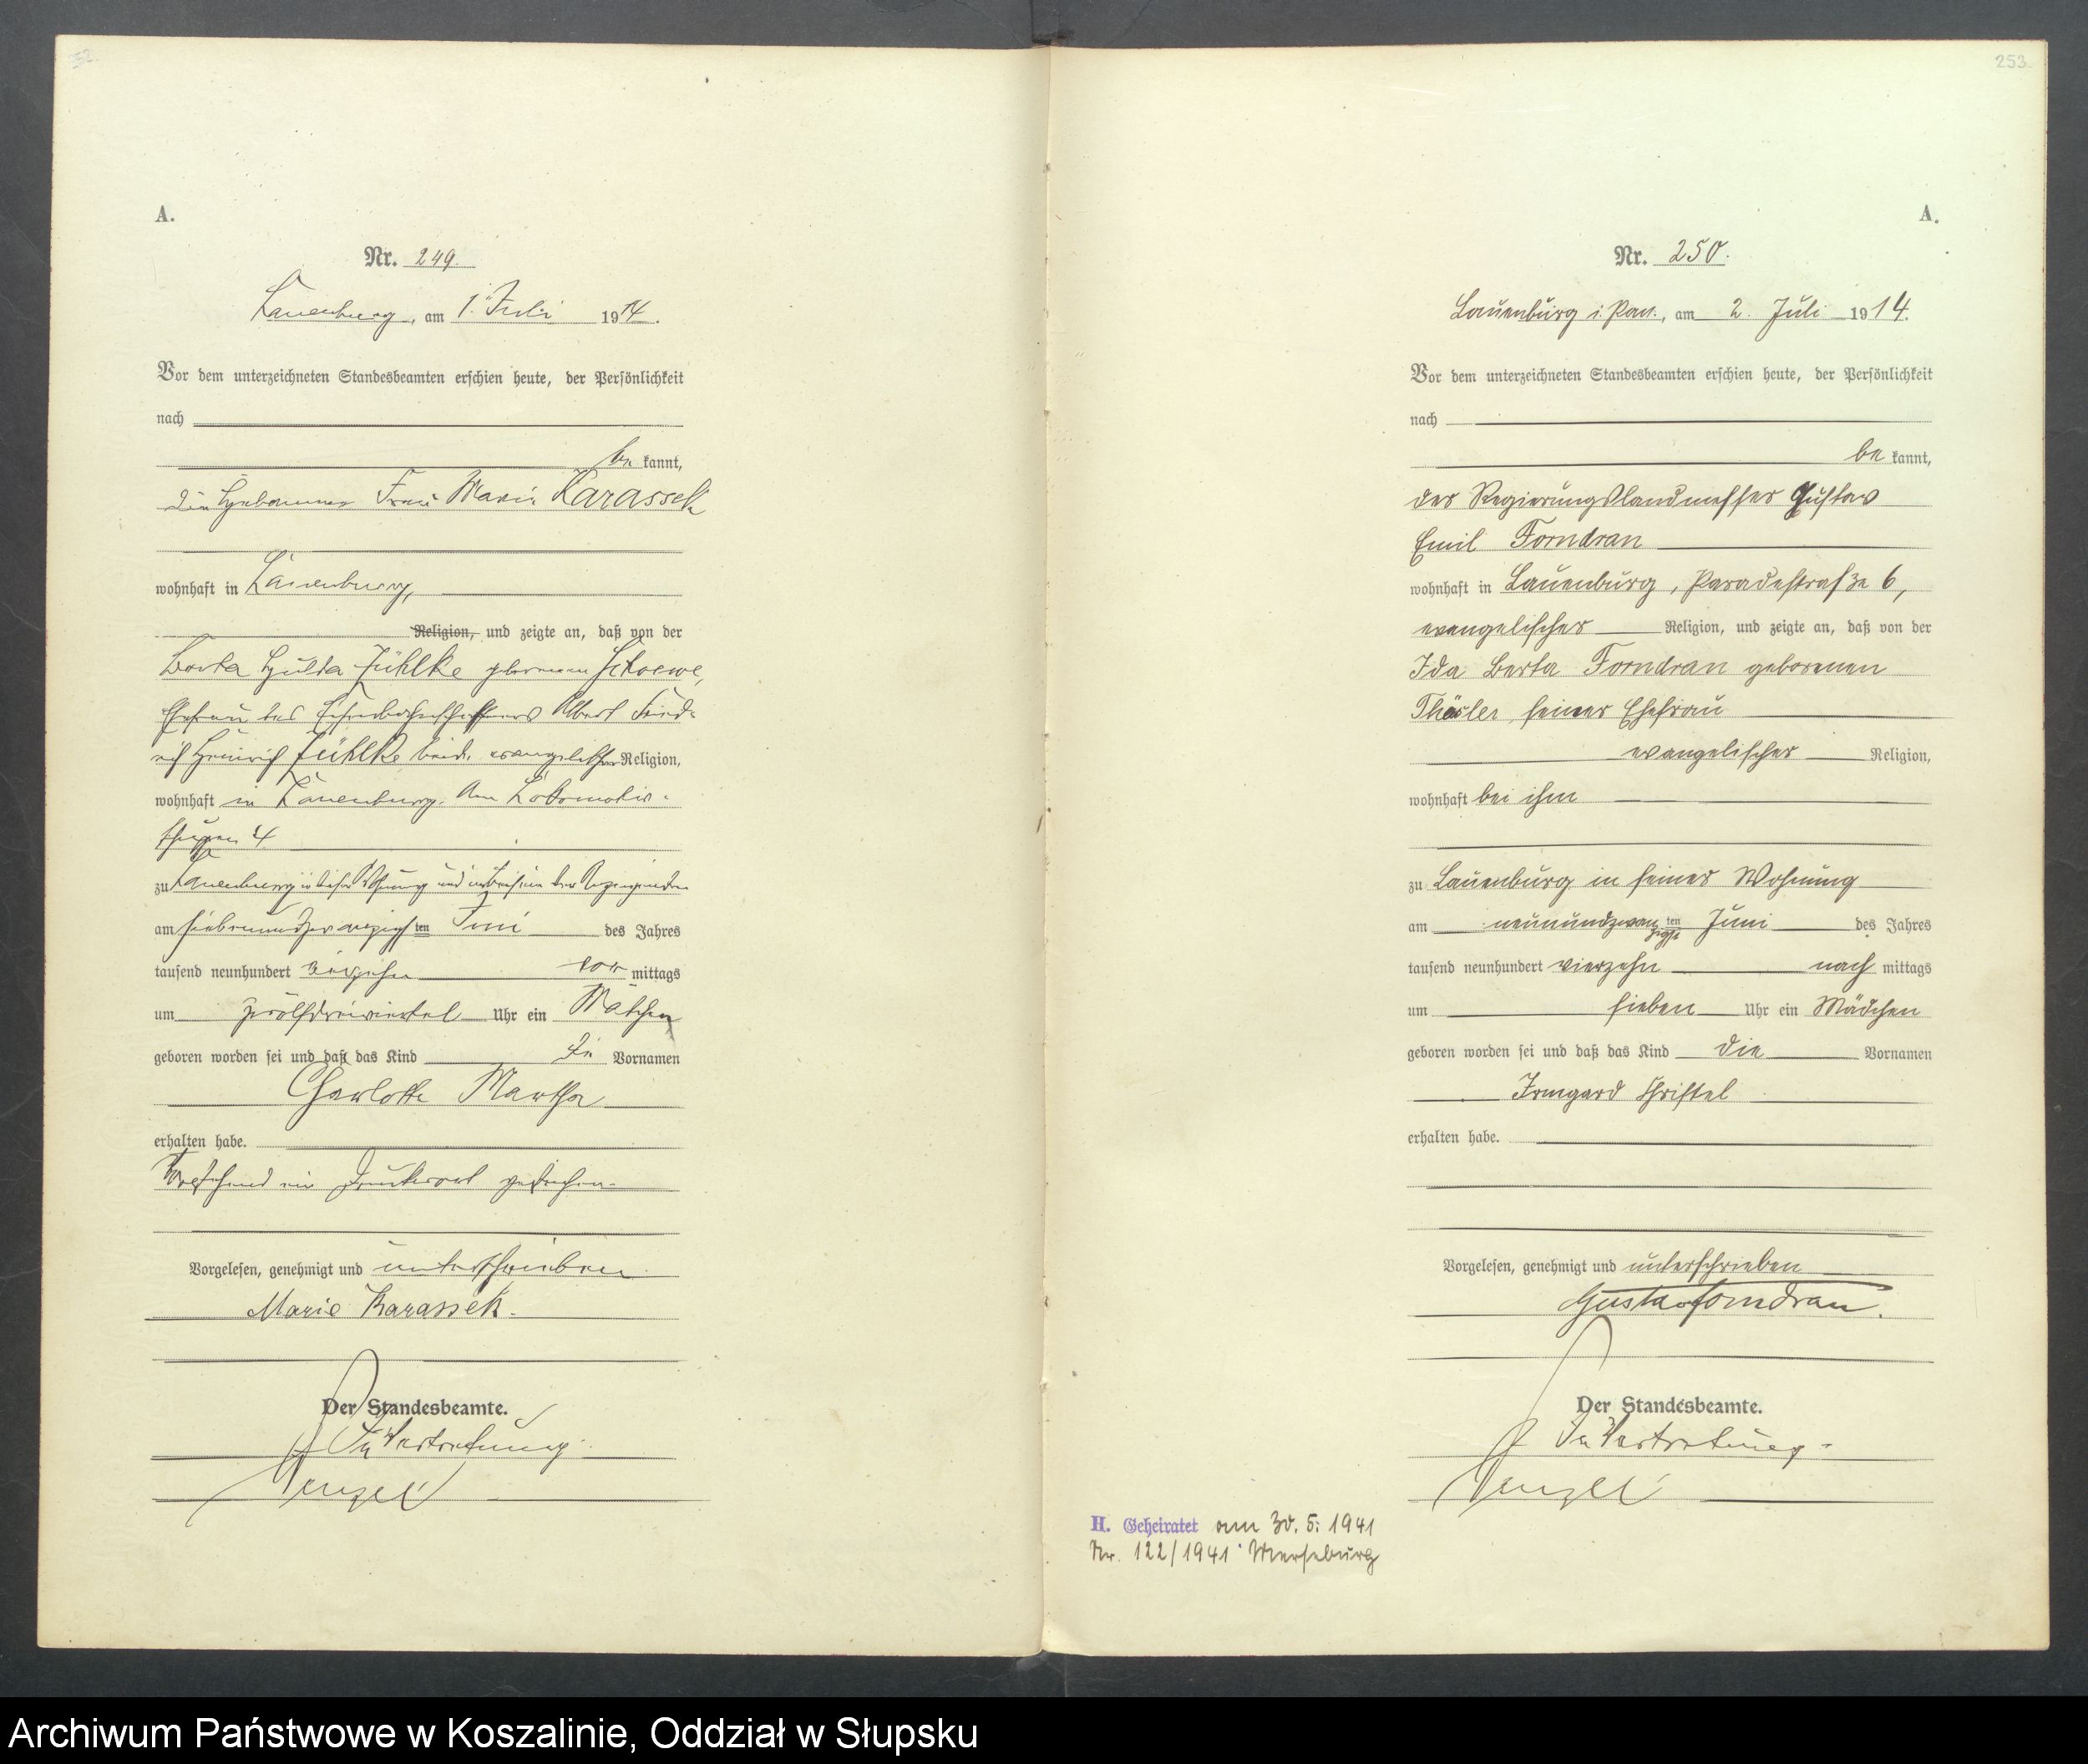 A.
Nr. 249.
Lauenburg, am 1. Juli 1914.
Vor dem unterzeichneten Standesbeamten erschien heute, der Persönlichkeit
nach
be kannt,
die Hebamme Frau Marie Karassek
wohnhaft in Lauenburg,
Religion, und zeigte an, daß von der
Berta Hulda Jühlke geborenen Schoewe,
Ehefrau des Eisenbahnschaffners Albert Fried-
rich Heinrich Jühlke beide evangelischer Religion,
wohnhaft in Lauenburg, Am Lokomotiv-
schuppen 4
zu Lauenburg in dieser Wohnung und im Beisein der Anzeigenden
am siebenundzwanzigsten Juni des Jahres
tausend neunhundert vierzehn vor mittags
um zwölfdreiviertel Uhr ein Mädchen
geboren worden sei und daß das Kind die Vornamen
Charlotte Martha
erhalten habe.
Vorstehend ein Druckwort gestrichen.
Vorgelesen, genehmigt und unterschrieben
Marie Karassek.
Der Standesbeamte.
In Vertretung.
Wenzel
253.
A.
Nr. 250.
Lauenburg i. Pom., am 2. Juli 1914.
Vor dem unterzeichneten Standesbeamten erschien heute, der Persönlichkeit
nach
be kannt,
der Regierungslandmesser Gustav
Emil Forndran
wohnhaft in Lauenburg, Paradestraße 6,
evangelischer Religion, und zeigte an, daß von der
Ida Berta Forndran geborenen
seiner Ehefrau
evangelischer Religion,
wohnhaft bei ihm
zu Lauenburg in seiner Wohnung
am neunundzwanzigsten Juni des Jahres
tausend neunhundert vierzehn nach mittags
um sieben Uhr ein Mädchen
geboren worden sei und daß das Kind die Vornamen
Irmgard Christel
erhalten habe.
Vorgelesen, genehmigt und unterschrieben
Gustav Forndran.
Der Standesbeamte.
In Vertretung.
Wenzel
H. Geheiratet am 30. 5. 1941
Nr. 122/1941 Merseburg
Archiwum Państwowe w Koszalinie, Oddział w Słupsku